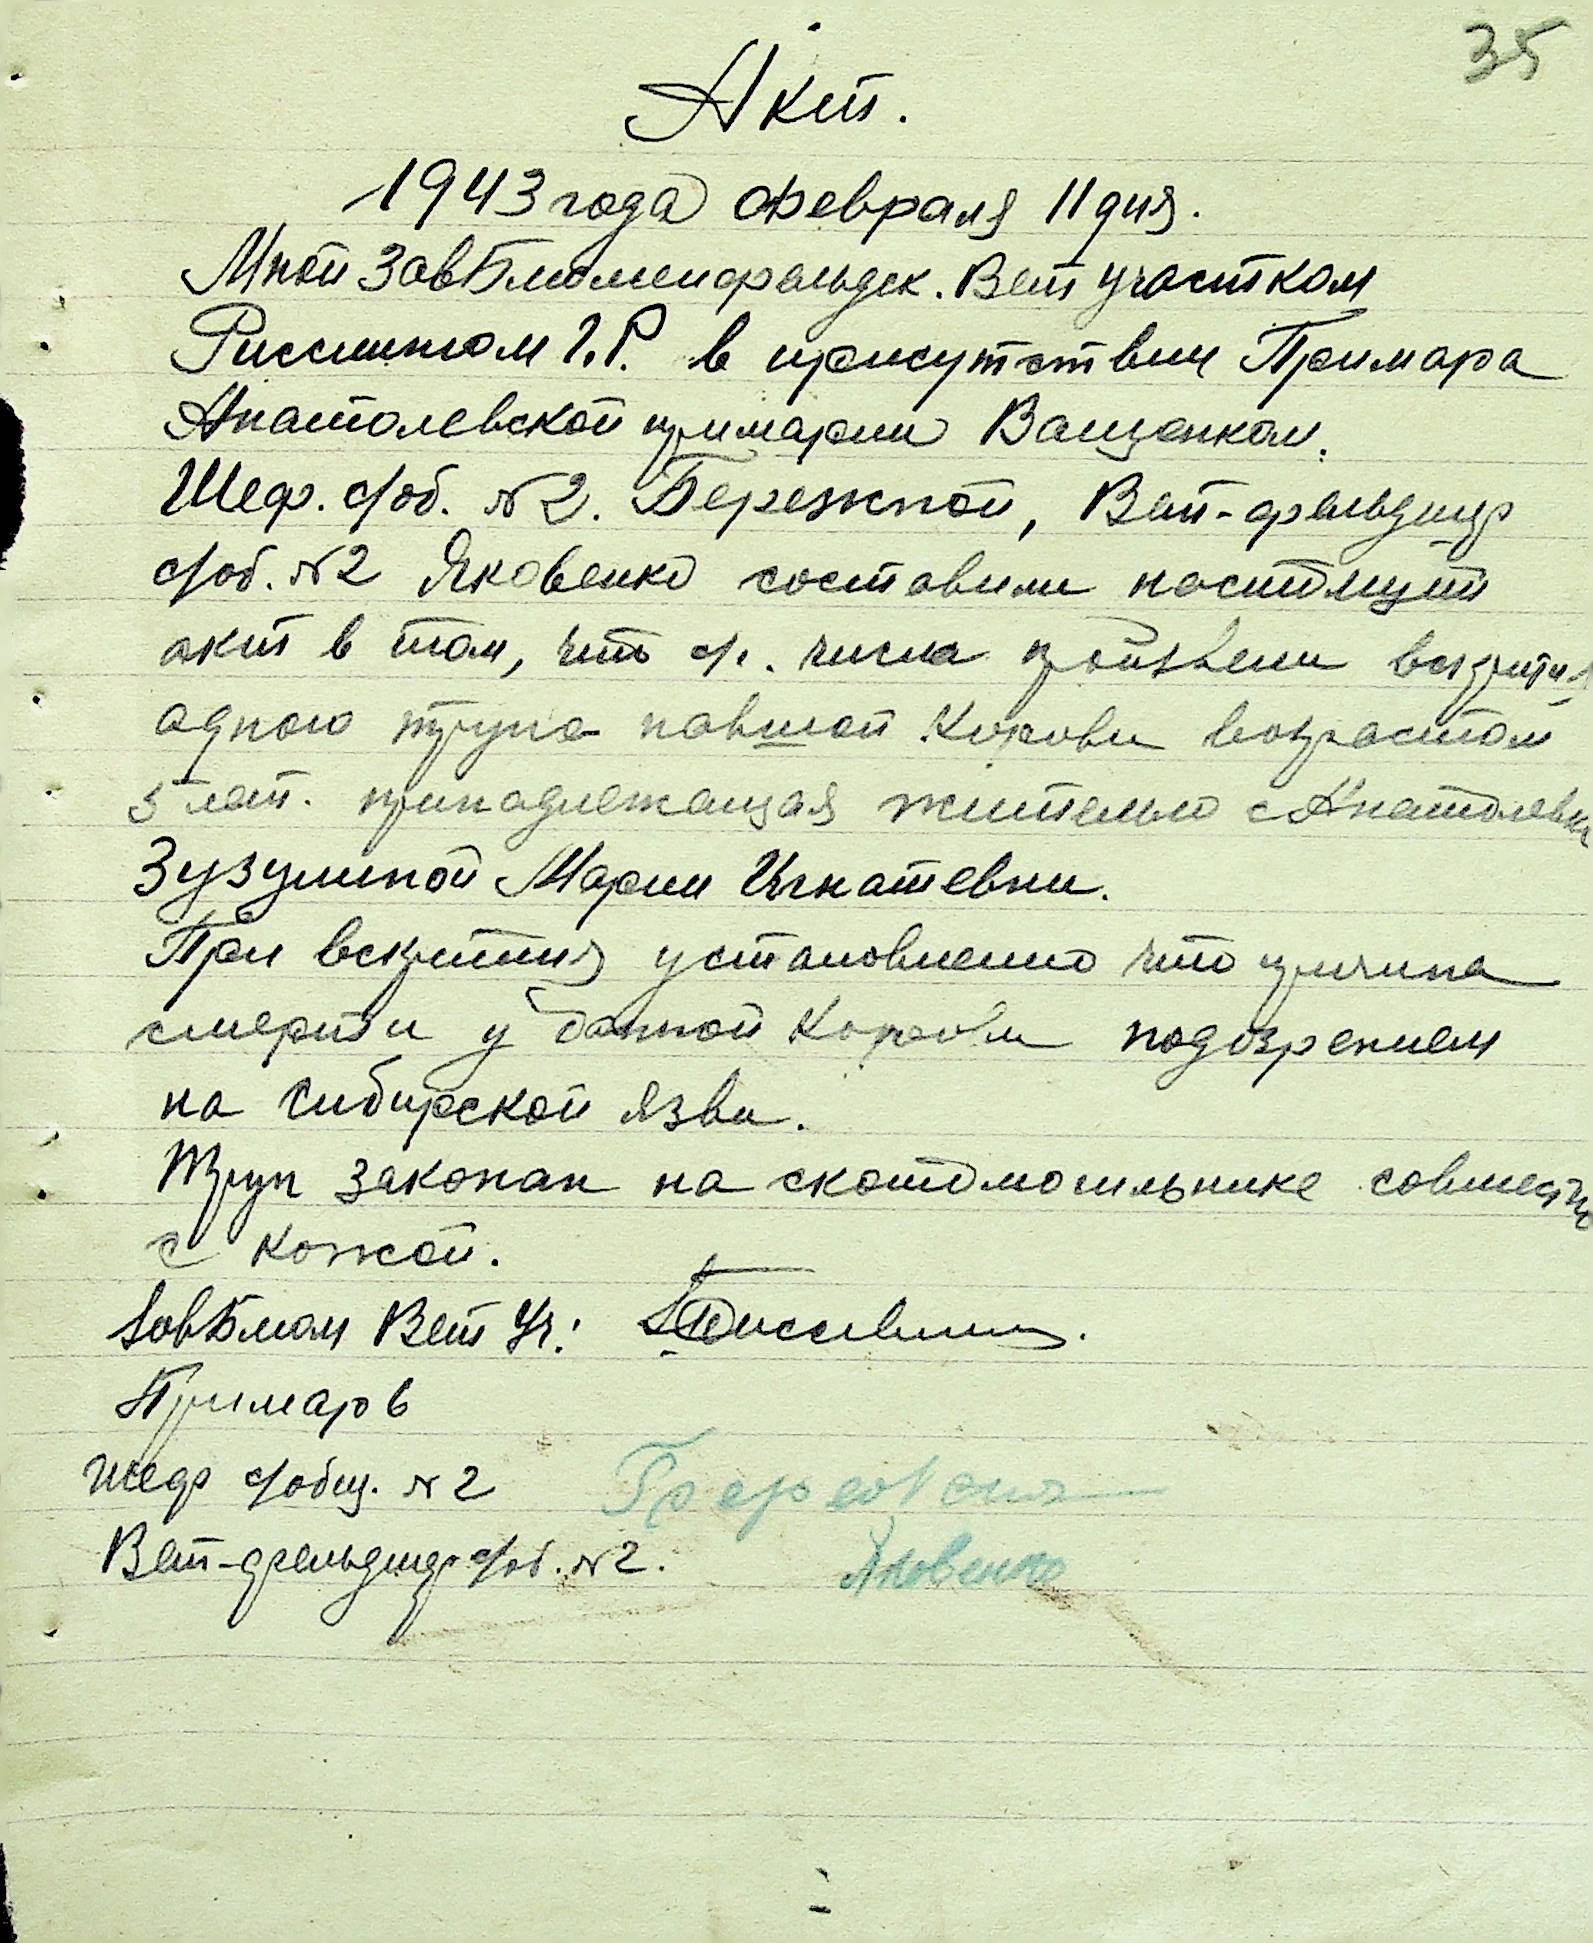 35
Акт.
1943 года февраля 11 дня.
Мной Зав Блюменфельдск. Вет участком
в присутствии Примара
Анатолевской примарии Ващенком.
Шеф. с/об. №2. Бережной, Вет-фельдшер
с/об. №2 Яковенко составили настоящий
акт в том, что с/. числа произвели вскрытия
одного трупа павшой Коровы возрастом
5 лет. принадлежащая жителью с Анатолевки
Зузулиной Марии Игнатевны.
При вскрытия установленно что причина
смерти у данной Коровы подозрением
на сибирской язвы.
Труп закопан на скотомогильнике совместно
с кожой.
Зав Блюм Вет Уч:
Примарь
Шеф с/общ. №2
Вет-фельдшер с/об. №2. Яковенко